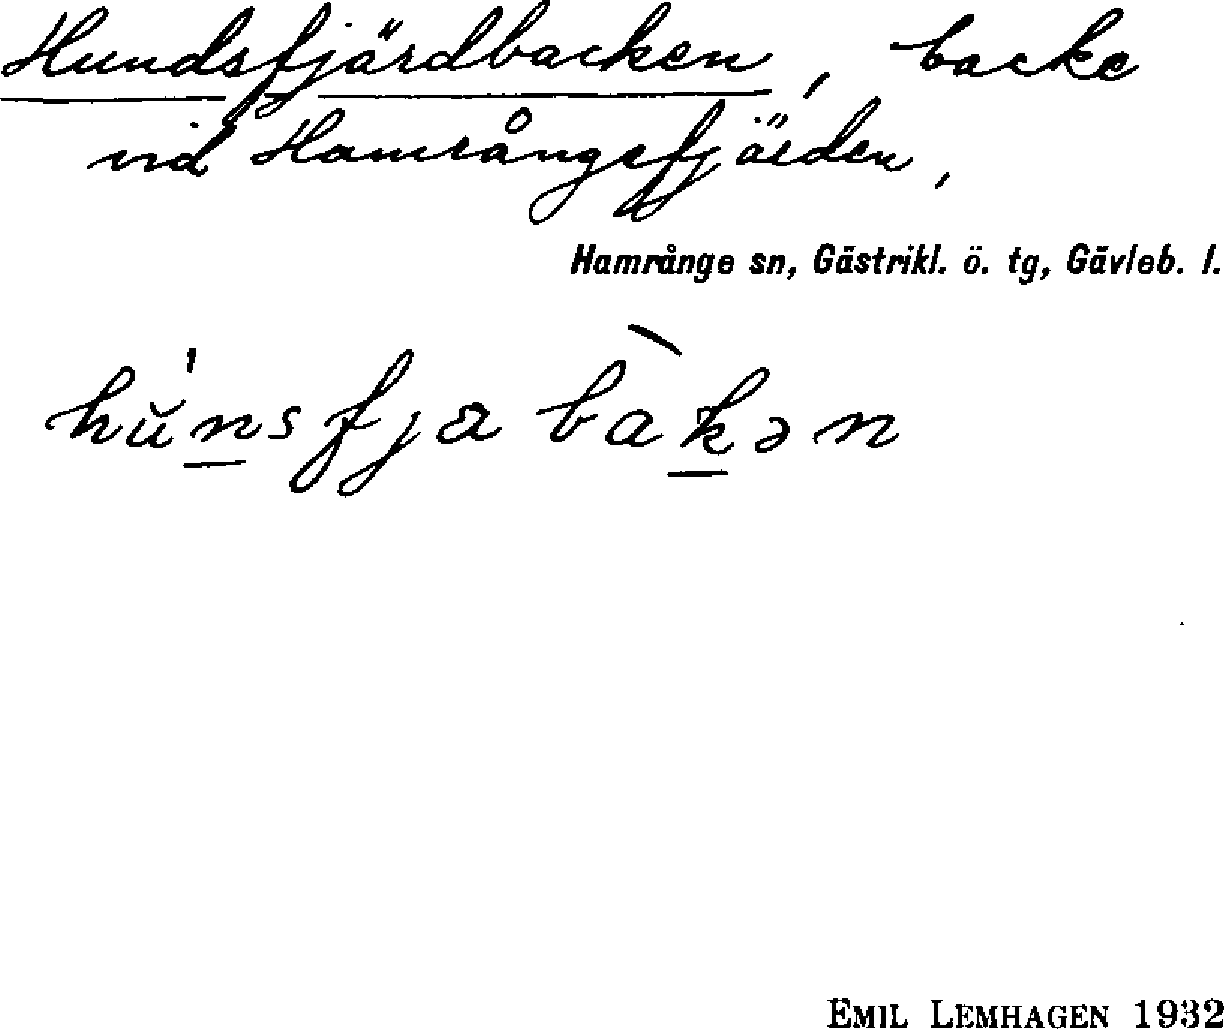 Hundsfjärdbacken, backe
vid Hamrångefjärden,
Hamrånge sn, Gästrikl. ö. tg, Gävleb. l.
hŭ́n̲sfja bàk̲ən
EMIL LEMHAGEN 1932